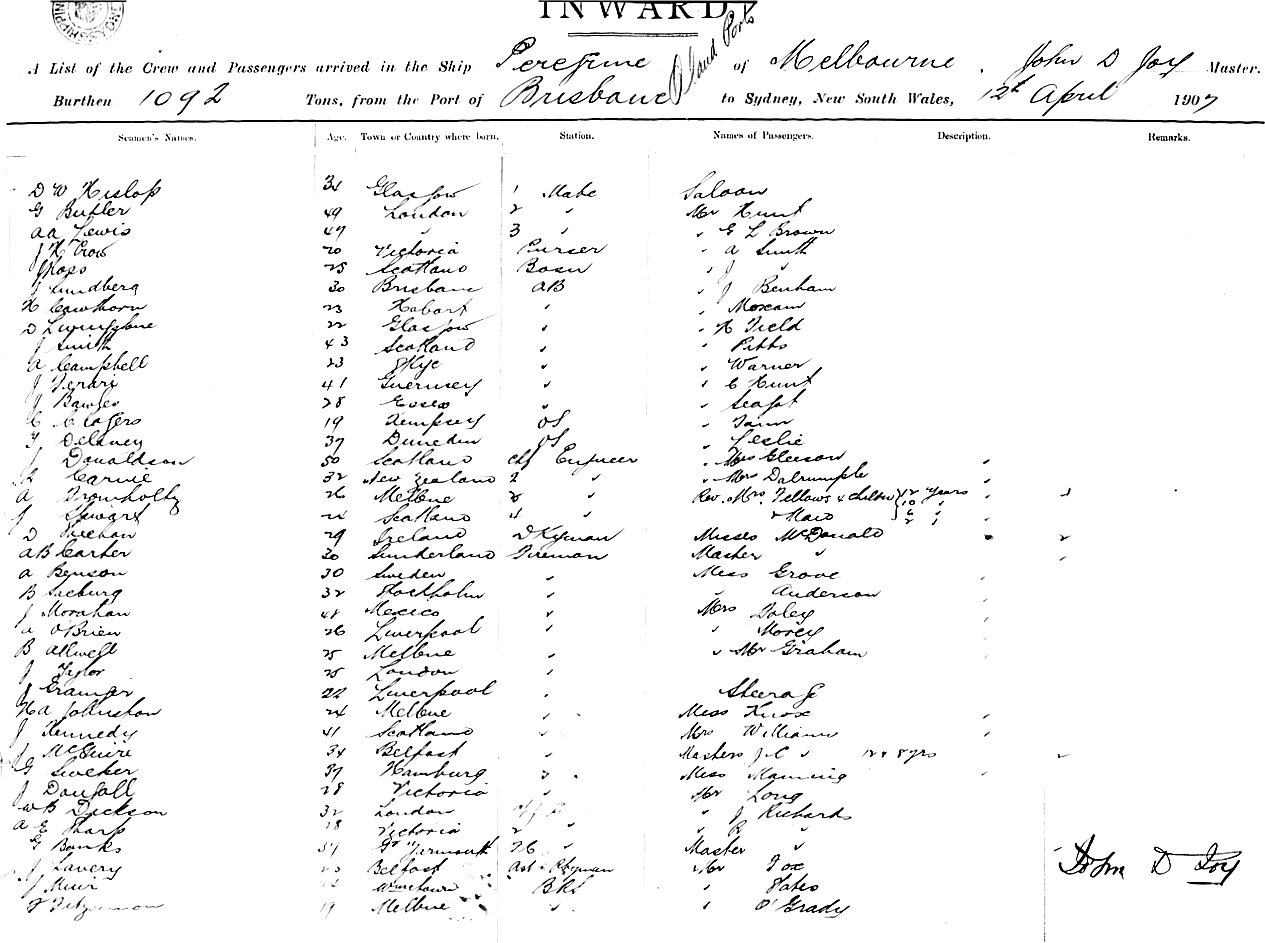 INWARD.
A List of the Crew and Passengers arrived in the Ship Peregrine of Melbourne, John D Joy Master.
Burthen 1092 Tons, from the Port of Brisbane and Ports to Sydney, New South Wales, 12th April 1907
Seamen's Names. Age. Town or Country where born. Station. Names of Passengers. Description. Remarks.
D W Hislop 34 Glasgow 1 Mate Saloon
G Butler 49 London 2 " Mr Hunt
AA Lewis 47 " 3 " " G L Brown
J H Crow 20 Victoria Purser " A Smith
J Ross 25 Scotland Bosn " J "
J Lundberg 30 Brisbane AB " J Benham
H Cawthorn 23 Hobart " "
D Livingstone 22 Glasgow " " H Field
J Smith 43 Scotland " " Pitts
A Campbell 23 Skye " " Warner
J Ferari 41 Guernsey " " C Hunt
J 28 Essex " "
C Rogers 19 Kempsey OS "
T Delaney 37 Dunedin OS " Leslie
J Donaldson 50 Scotland chf Engineer " Mrs Gleeson "
Carnie 32 New Zealand 2 " " Mrs Dalrumple "
A Tromholtz 26 Melbne 3 " Rev. Mrs Fellows & children 12 years "
J Stewart Scotland 4 " & Maid 10 " 6 " 2 "
D Meehan 29 Ireland DKyman Misses McDonald "
AB Carter 30 Sunderland Fireman Master " "
A Benson 30 Sweden " Miss Grove
B 32 Stockholm " " Anderson
J Morahan 48 Mexico " Mrs Foley
A O'Brien 26 Liverpool " " Morey
B Allwell 25 Melbne " " Mr Graham "
J Taylor 25 London "
J Grainger 22 Liverpool " Steerage
HA Johnston 24 Melbne " Miss Knox "
J Kennedy 41 Scotland " Mrs William "
J McGuire 34 Belfast " Masters J C " 12 & 8 yrs "
G Sweker 37 Hamburg " Miss Manning "
J Dougall 28 Victoria " Mr Long
WB Dickson 32 London " J Richards
A E Sharp 18 Victoria 2 " " R "
G Banks 57 Gt Yarmouth Master "
J Lavery Belfast Ast Mr Fox John D Joy
J Muir " Yates
19 Melbne " " O'Grady